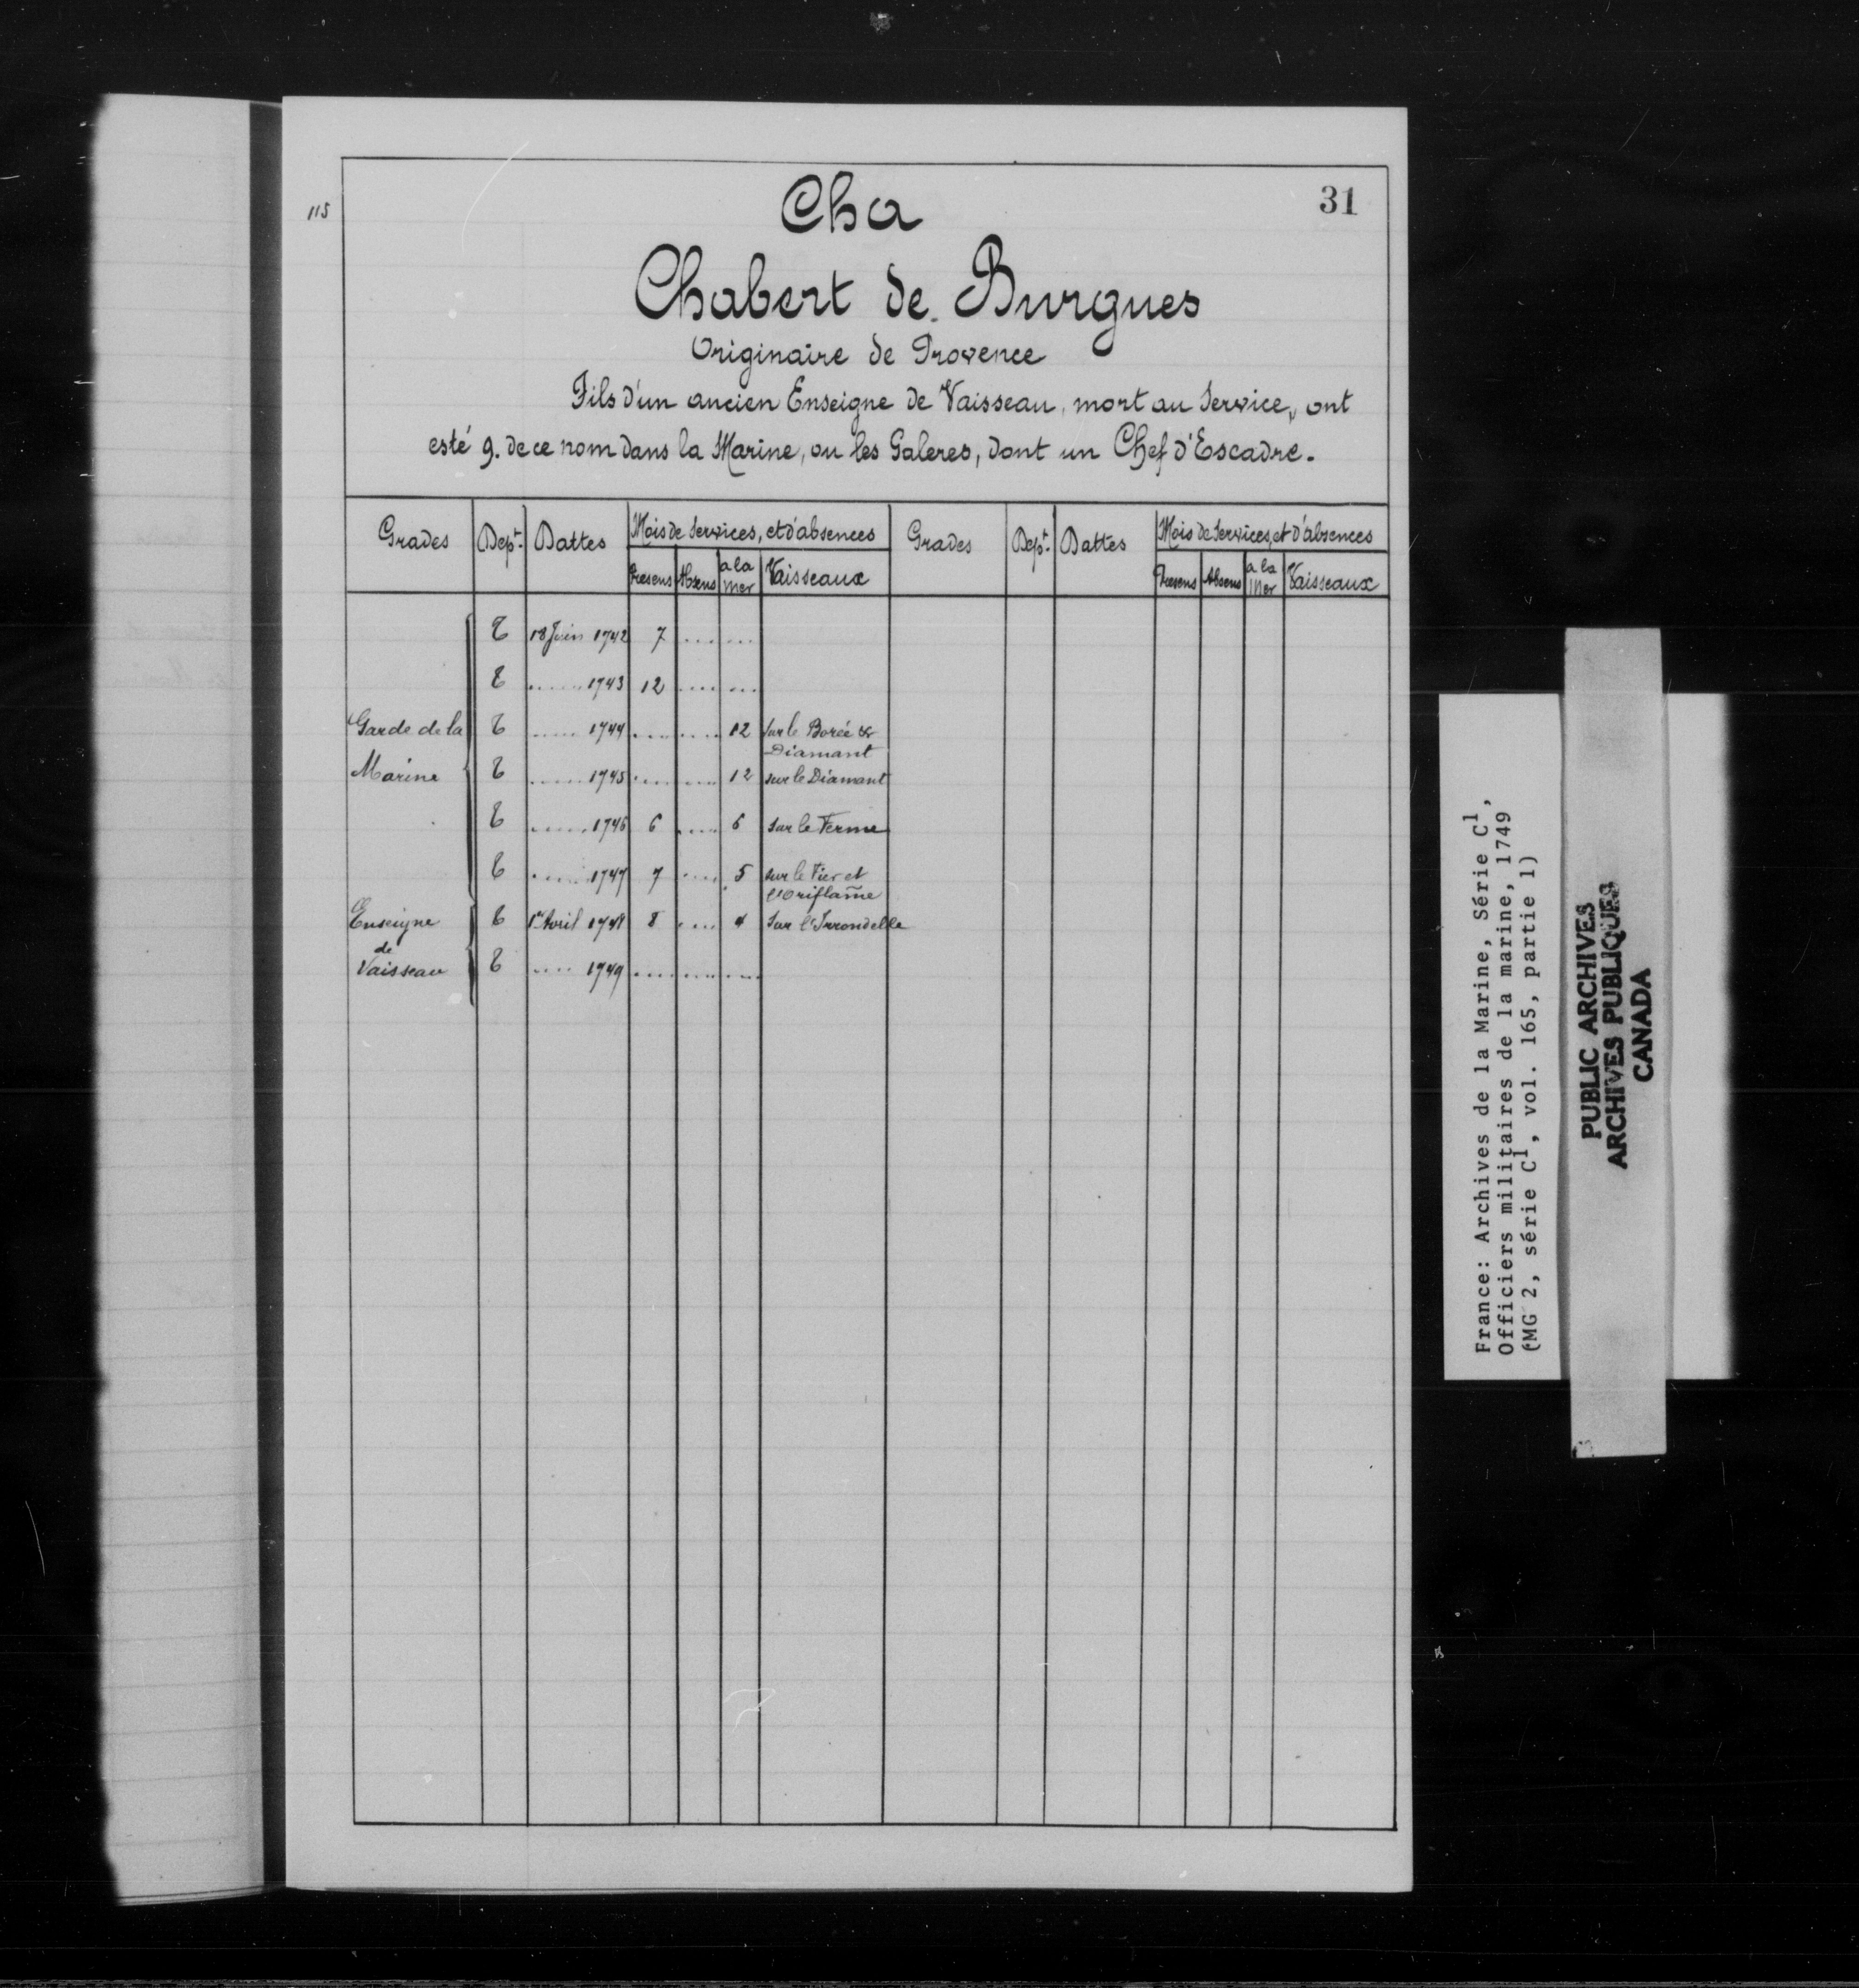 115
31
Cha
Chabert de Burgues
Originaire de Provence
Fils d'un ancien Enseigne de Vaisseau, mort au Service, ont
esté 9. de ce nom dans la Marine, ou les Galeres, dont un Chef d'Escadre.
Grades Dept. Dattes Mois de Services, et d'absences Grades Dept. Dattes Mois de Services, et d'absences
Presens Absens a la Mer Vaisseaux Presens Absens a la Mer Vaisseaux
T 18 Juin 1742 7 .... ...
T ...... 1743 12 .... ...
Garde de la T ...... 1744 .... .... 12 sur le Borée &
Diamant
Marine T ...... 1745 .... .... 12 sur le Diamant
T ...... 1746 6 .... 6 sur le Ferme
T ...... 1747 7 .... 5 sur le Fier et
l'Oriflam̃e
Enseigne T 1er Avril 1748 8 .... 4 Sur l'Irrondelle
de
Vaisseau T ..... 1749 .... .... ....
France: Archives de la Marine, Série C1,
Officiers militaires de la marine, 1749
(MG 2, série C1, vol. 165, partie 1)
PUBLIC ARCHIVES
ARCHIVES PUBLIQUES
CANADA